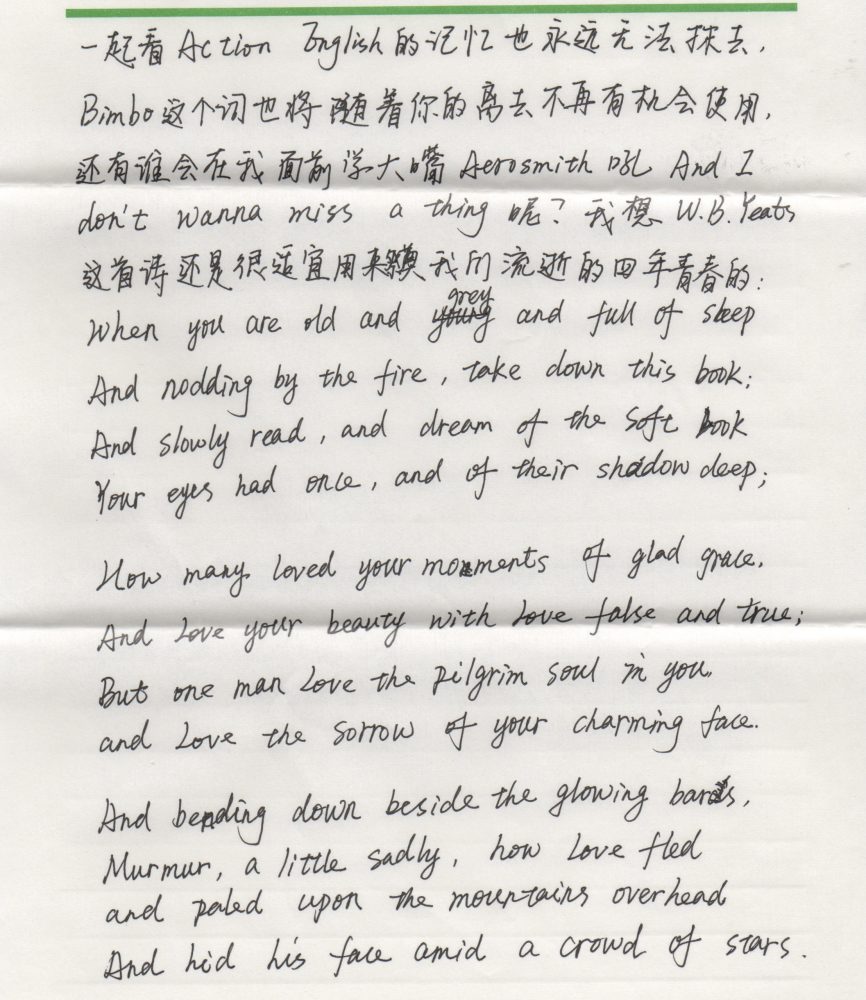 一起看 Action English 的记忆也永远无法抹去,
Bimbo 这个词也将随着你的离去不再有机会使用,
还有谁会在我面前学大嘴 Aerosmith 吼 And I
don't wanna miss a thing 呢? 我想 W.B. Yeats
这首诗还是很适宜用来祭奠我们流逝的四年青春的:
When you are old and grey and full of sleep
And nodding by the fire, take down this book;
And slowly read, and dream of the soft look
Your eyes had once, and of their shadow deep;
How many loved your moments of glad grace.
And Love your beauty with Love false and true;
But one man Love the pilgrim soul in you.
and Love the sorrow of your charming face.
And bending down beside the glowing bars,
Murmur, a little sadly, how Love fled
and paled upon the mountains overhead
And hid his face amid a crowd of stars.